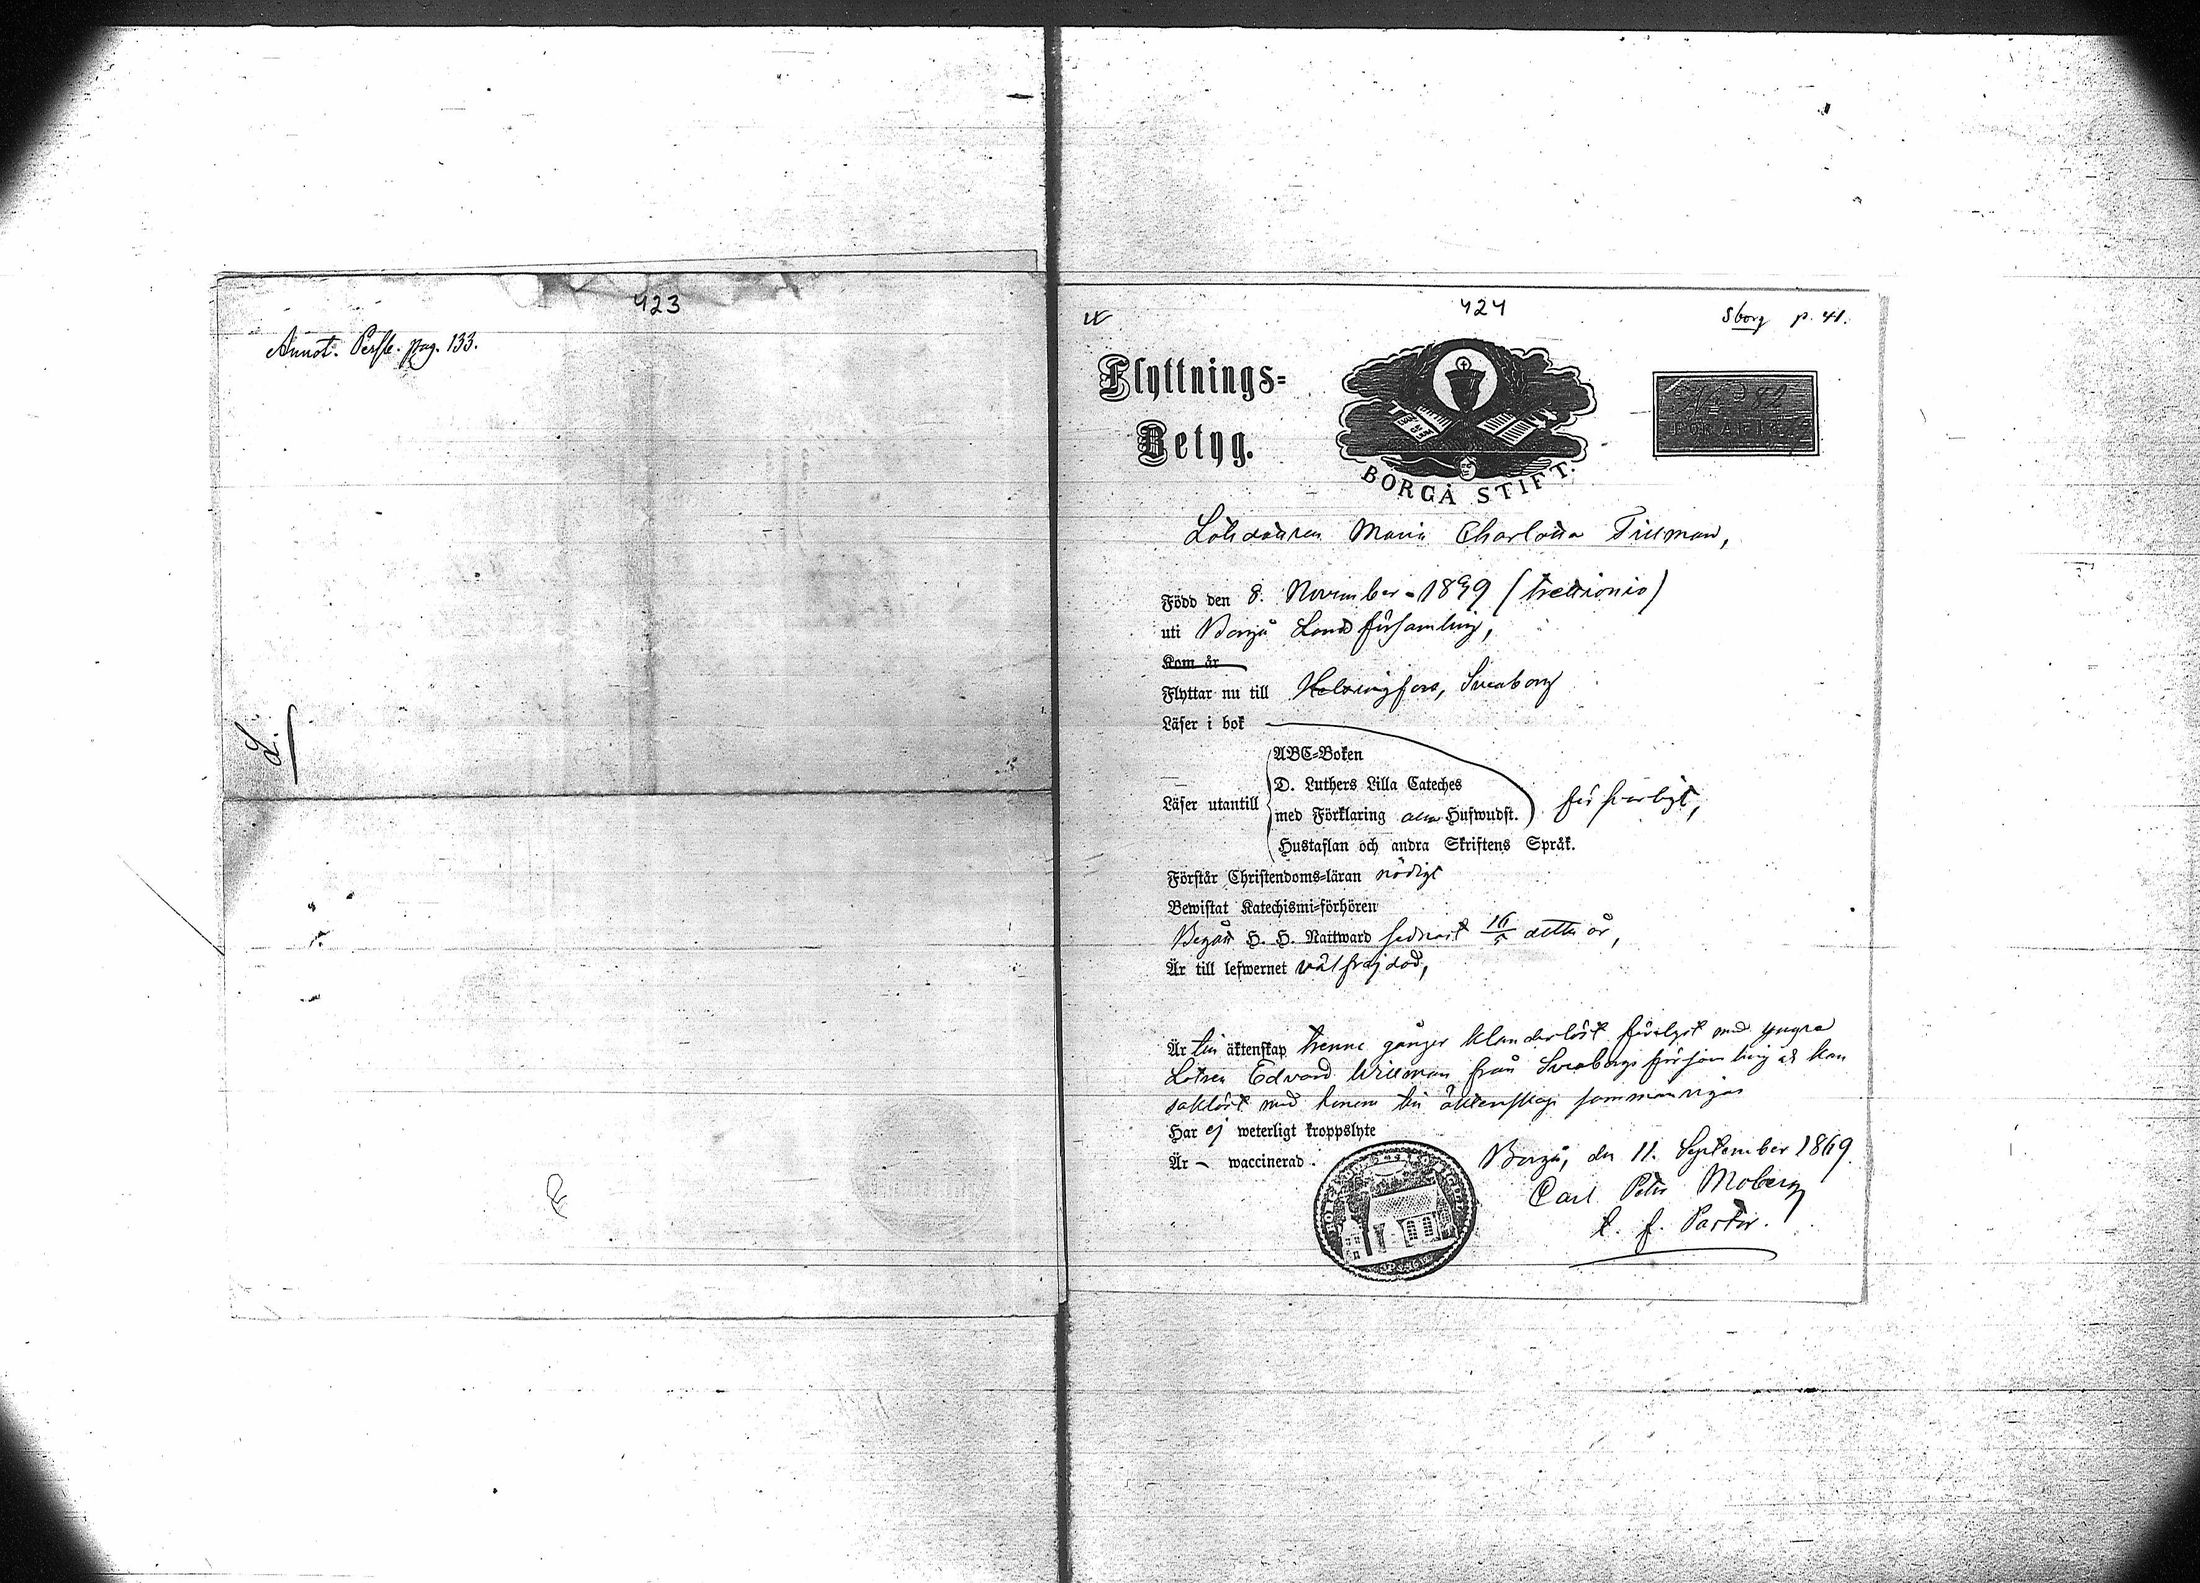 423
Annot. Persb. pag. 133.
L.
424
Sborg p. 41.
Flyttnings-
Betyg.
BORGÅ STIFT.
No 82
Lots dottren Maria Charlotta Tillman,
Född den 8. November 1839 (trettionio)
uti Borgå Lands församling,
Kom år
Flyttar nu till Helsingfors, Sveaborg
Läser i bok
ABC-Boken
D. Luthers Lilla Cateches
Läser utantill
med Förklaring Hufwudst.
försvarligt,
Hustaflan och andra Skriftens Språk.
Förstår Christendoms-läran nödigt
Bewistat Katechismi-förhören
Begått H. H. Nattward sednast detta år,
Är till lefwernet välfrejdad,
Är till äktenskap trenne gånger klanderlöst förelyst med yngre
Lotsen Edvard Willman från Sveaborgs församling at kan
saklöst med honom till äktenskap sammanvigas
Har ej weterligt kroppslyte
Är waccinerad.
Borgå, den 11. September 1869.
Carl Petter Moberg
t. f. Pastor.